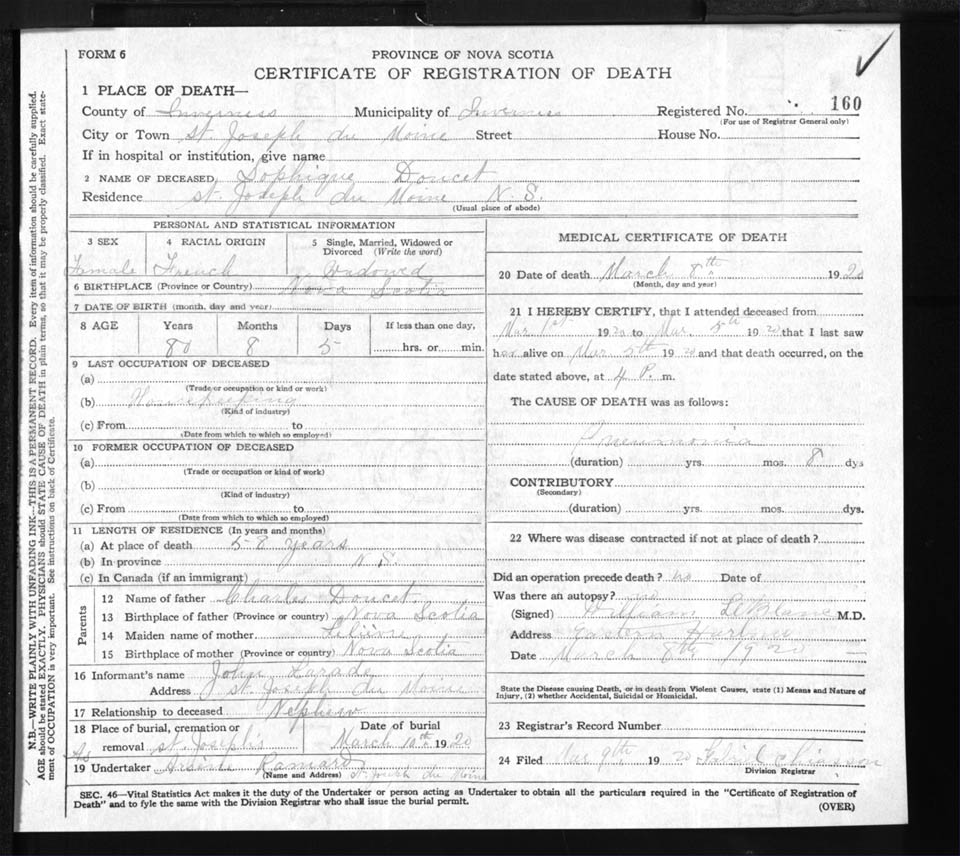 FORM 6
PROVINCE OF NOVA SCOTIA
CERTIFICATE OF REGISTRATION OF DEATH
1 PLACE OF DEATH—
County of Inverness Municipality of Inverness Registered No. 160
(For use of Registrar General only)
City or Town St. Joseph du Moine Street House No.
If in hospital or institution, give name
2 NAME OF DECEASED Sophique Doucet
Residence St. Joseph du Moine N. S.
(Usual place of abode)
PERSONAL AND STATISTICAL INFORMATION
3 SEX 4 RACIAL ORIGIN 5 Single, Married, Widowed or Divorced (Write the word)
Female French Widowed
6 BIRTHPLACE (Province or Country) Nova Scotia
7 DATE OF BIRTH (month, day and year)
8 AGE Years Months Days If less than one day,
80 8 5 hrs. or min.
9 LAST OCCUPATION OF DECEASED
(a)
(Trade or occupation or kind or work)
(b) Housekeeping
(Kind of industry)
(c) From to
(Date from which to which so employed)
10 FORMER OCCUPATION OF DECEASED
(a)
(Trade or occupation or kind of work)
(b)
(Kind of industry)
(c) From to
(Date from which to which so employed)
11 LENGTH OF RESIDENCE (In years and months)
(a) At place of death 58 years
(b) In province N. S.
(c) In Canada (if an immigrant)
Parents
12 Name of father Charles Doucet
13 Birthplace of father (Province or country) Nova Scotia
14 Maiden name of mother
15 Birthplace of mother (Province or country) Nova Scotia
16 Informant's name John Larade
Address St. Joseph du Moine
17 Relationship to deceased Nephew
18 Place of burial, cremation or removal St. Joseph's
Date of burial March 10th 1920
19 Undertaker
(Name and Address) St. Joseph du Moine
MEDICAL CERTIFICATE OF DEATH
20 Date of death March 8th 1920
(Month, day and year)
21 I HEREBY CERTIFY, that I attended deceased from
Mar 1st 1920 to Mar. 5th 1920 that I last saw
her alive on Mar 5th 1920 and that death occurred, on the
date stated above, at 4 P. m.
The CAUSE OF DEATH was as follows:
Pneumonia
(duration) yrs. mos. 8 dys
CONTRIBUTORY
(Secondary)
(duration) yrs. mos. dys.
22 Where was disease contracted if not at place of death?
Did an operation precede death? no Date of
Was there an autopsy? no
(Signed) William LeBlanc M.D.
Address Eastern Harbour
Date March 8th 1920
State the Disease causing Death, or in death from Violent Causes, state (1) Means and Nature of
Injury, (2) whether Accidental, Suicidal or Homicidal.
23 Registrar's Record Number
24 Filed Mar 9th 1920 Chiasson
Division Registrar
SEC. 46—Vital Statistics Act makes it the duty of the Undertaker or person acting as Undertaker to obtain all the particulars required in the "Certificate of Registration of
Death" and to fyle the same with the Division Registrar who shall issue the burial permit.
(OVER)
N.B.—WRITE PLAINLY WITH UNFADING INK—THIS IS A PERMANENT RECORD. Every item of information should be carefully supplied.
AGE should be stated EXACTLY. PHYSICIANS should STATE CAUSE OF DEATH in plain terms, so that it may be properly classified. Exact state-
ment of OCCUPATION is very important. See instructions on back of Certificate.